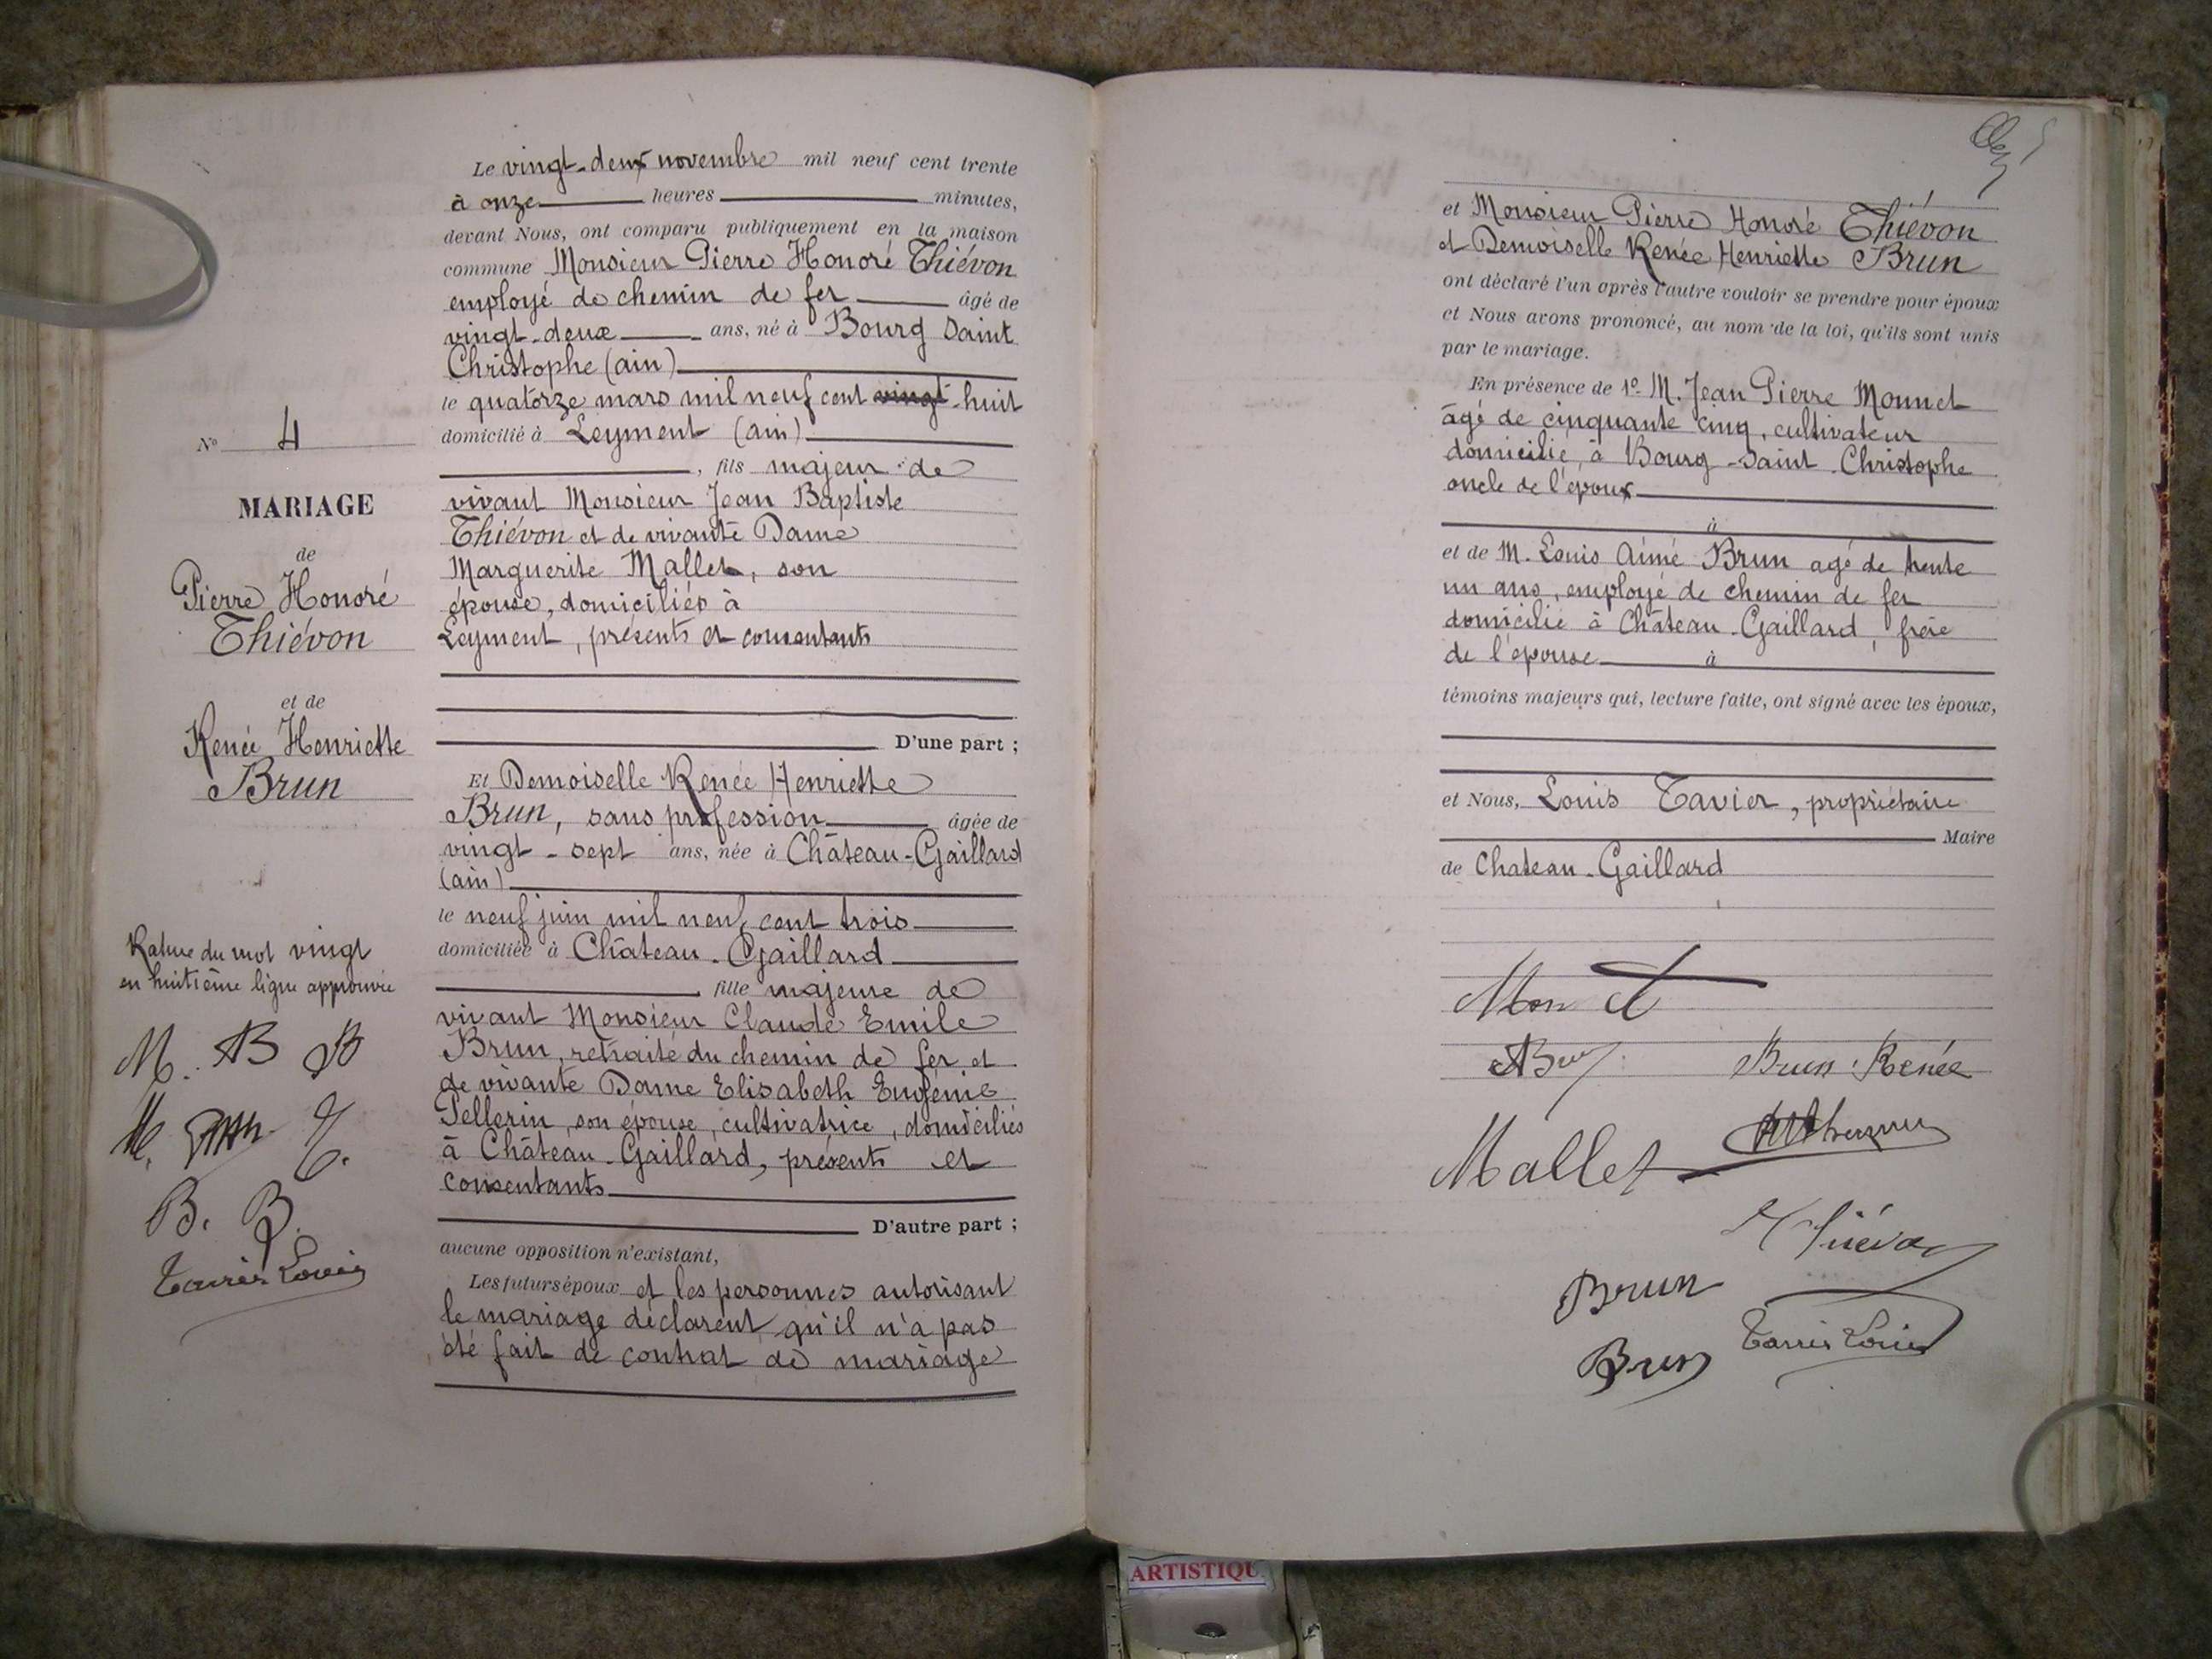 Le vingt-deux novembre mil neuf cent trente
à onze heures minutes,
devant Nous, ont comparu publiquement en la maison
commune Monsieur Pierre Honoré Thiévon
employé de chemin de fer âgé de
vingt-deux ans, né à Bourg Saint
Christophe (ain)
le quatorze mars mil neuf cent vingt-huit
domicilié à Leyment (ain)
, fils majeur de
vivant Monsieur Jean Baptiste
Thiévon et de vivante Dame
Marguerite Mallet, son
épouse, domiciliés à
Leyment, présents et consentants
D'une part ;
Et Demoiselle Renée Henriette
Brun, sans profession âgée de
vingt-sept ans, née à Château-Gaillard
(ain)
le neuf juin mil neuf cent trois
domiciliée à Château-Gaillard
fille majeure de
vivant Monsieur Claude Emile
Brun, retraité du chemin de fer et
de vivante Dame Elisabeth Eugénie
Pellerin, son épouse, cultivatrice, domiciliés
à Château-Gaillard, présents et
consentants
D'autre part ;
aucune opposition n'existant,
Les futurs époux et les personnes autorisant
le mariage déclarent qu'il n'a pas
été fait de contrat de mariage
N° 4
MARIAGE
de
Pierre Honoré
Thiévon
et de
Renée Henriette
Brun
Rature du mot vingt
en huitième ligne approuvée
M. AB B
M. T.
B. B.
Tavier Louis
et Monsieur Pierre Honoré Thiévon
et Demoiselle Renée Henriette Brun
ont déclaré l'un après l'autre vouloir se prendre pour époux
et Nous avons prononcé, au nom de la loi, qu'ils sont unis
par le mariage.
En présence de 1° M. Jean Pierre Monnet
âgé de cinquante cinq, cultivateur
domicilié, à Bourg-Saint-Christophe
oncle de l'époux
à
et de M. Louis Aimé Brun agé de trente
un ans, employé de chemin de fer
domicilié à Château-Gaillard, frère
de l'épouse à
témoins majeurs qui, lecture faite, ont signé avec les époux,
et Nous, Louis Tavier, propriétaire
Maire
de Chateau-Gaillard
Brun Renée
Mallet
Thiévon
Brun
Tavier Louis
Brun
ARTISTIQU